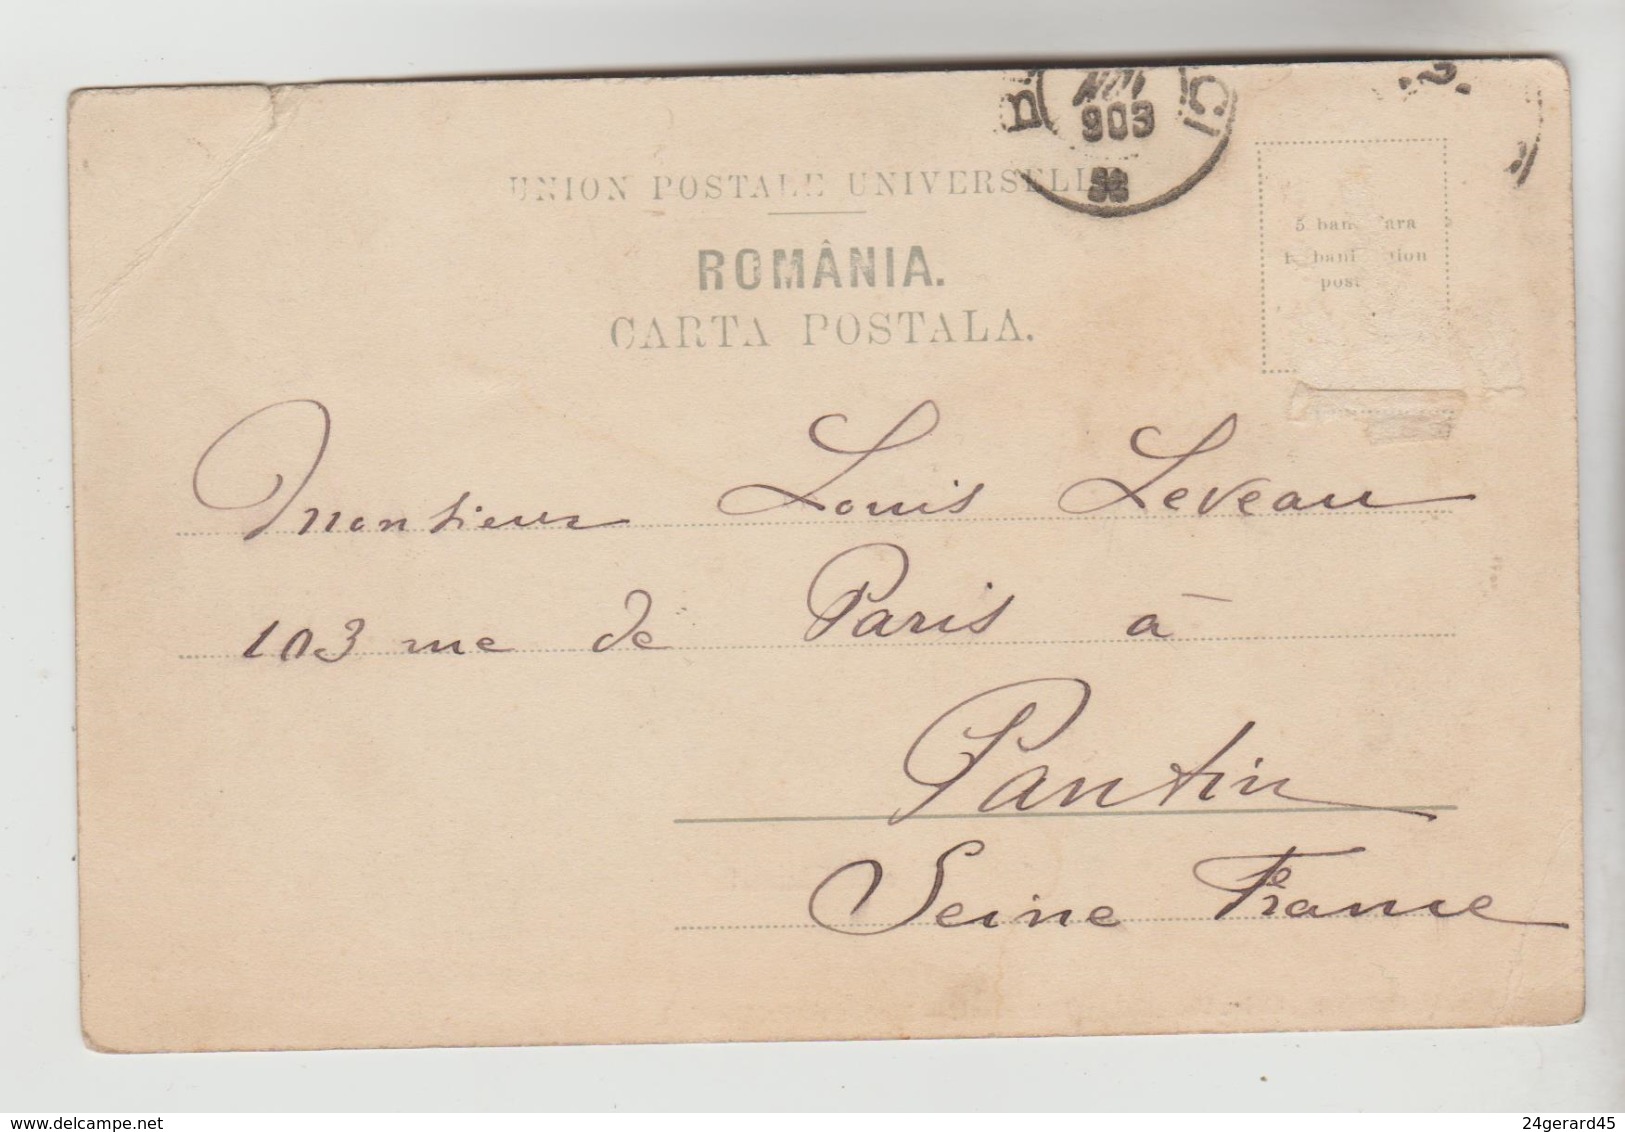 NOV
903
UNION POSTALE UNIVERSELLE
ROMÂNIA.
CARTA POSTALA.
5 bani Ţara
bani
Monsieur Louis Leveau
103 rue de Paris à
Pantin
Seine France
www.delcampe.net
24gerard45